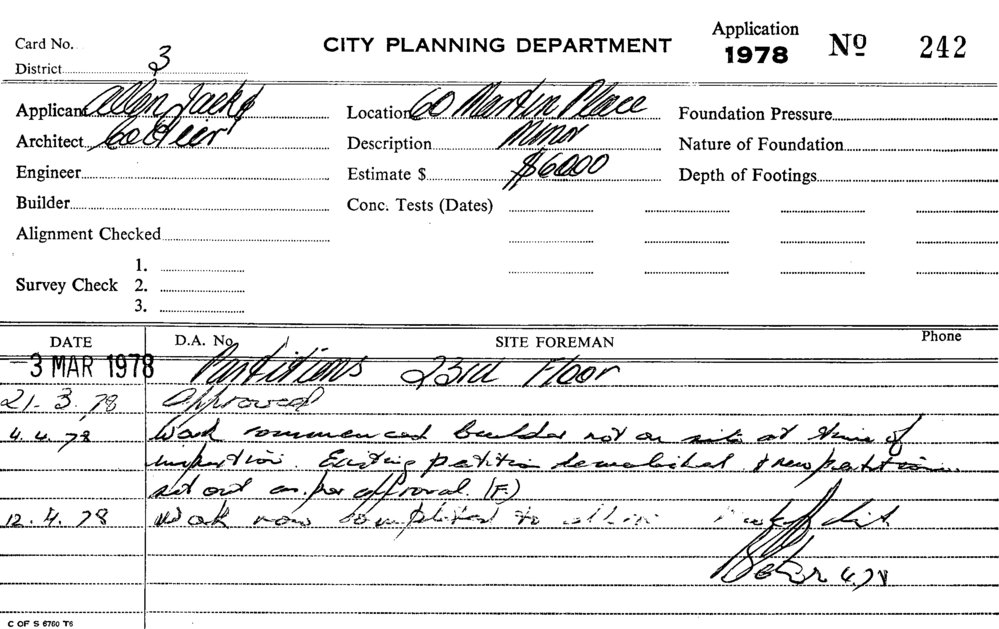 Card No.
District 3
CITY PLANNING DEPARTMENT
Application
1978 Nº 242
Applicant Allen Jack &
Architect Cottier
Engineer
Builder
Alignment Checked
Survey Check 1.
2.
3.
Location 60 Martin Place
Description Minor
Estimate $ $6000
Conc. Tests (Dates)
Foundation Pressure
Nature of Foundation
Depth of Footings
DATE D.A. No. SITE FOREMAN Phone
-3 MAR 1978 Partitions 23rd Floor
21.3.78 Approved
4.4.78 Work commenced builder not on site at time of
inspection. Existing partition demolished & new partition
set out as per approval. (F.)
12.4.78 Work now completed to
4.78
C OF S 6760 T6